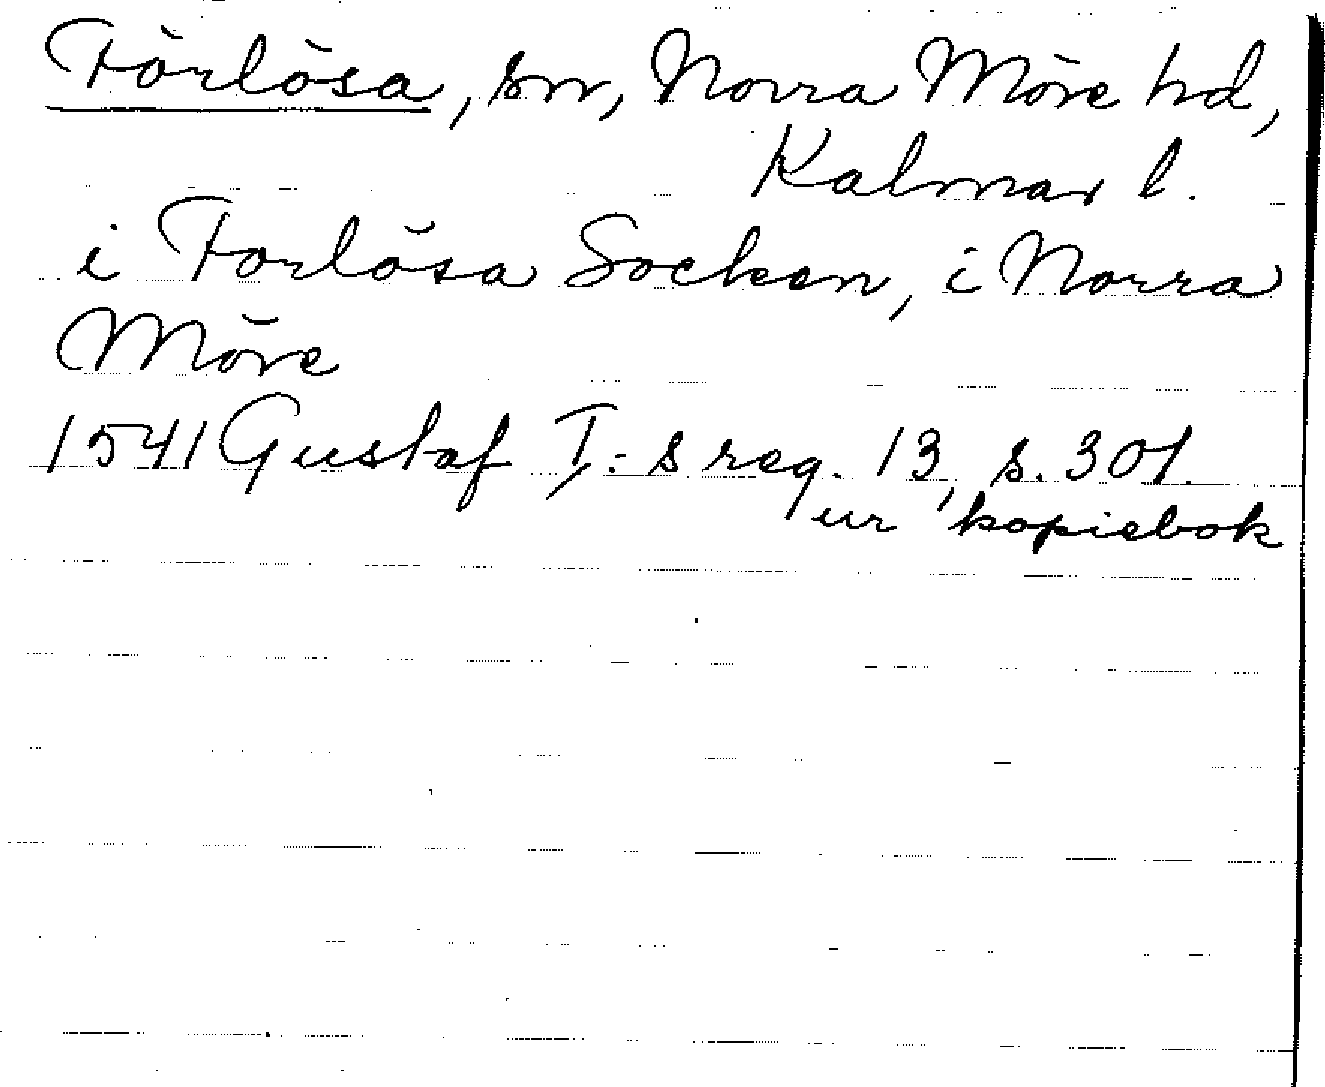 Förlösa, sn, Norra Möre hd,
Kalmar l.
i Forlösa Socken, i Norra
Möre
1541 Gustaf I:s reg. 13, s. 301.
ur kopiebok